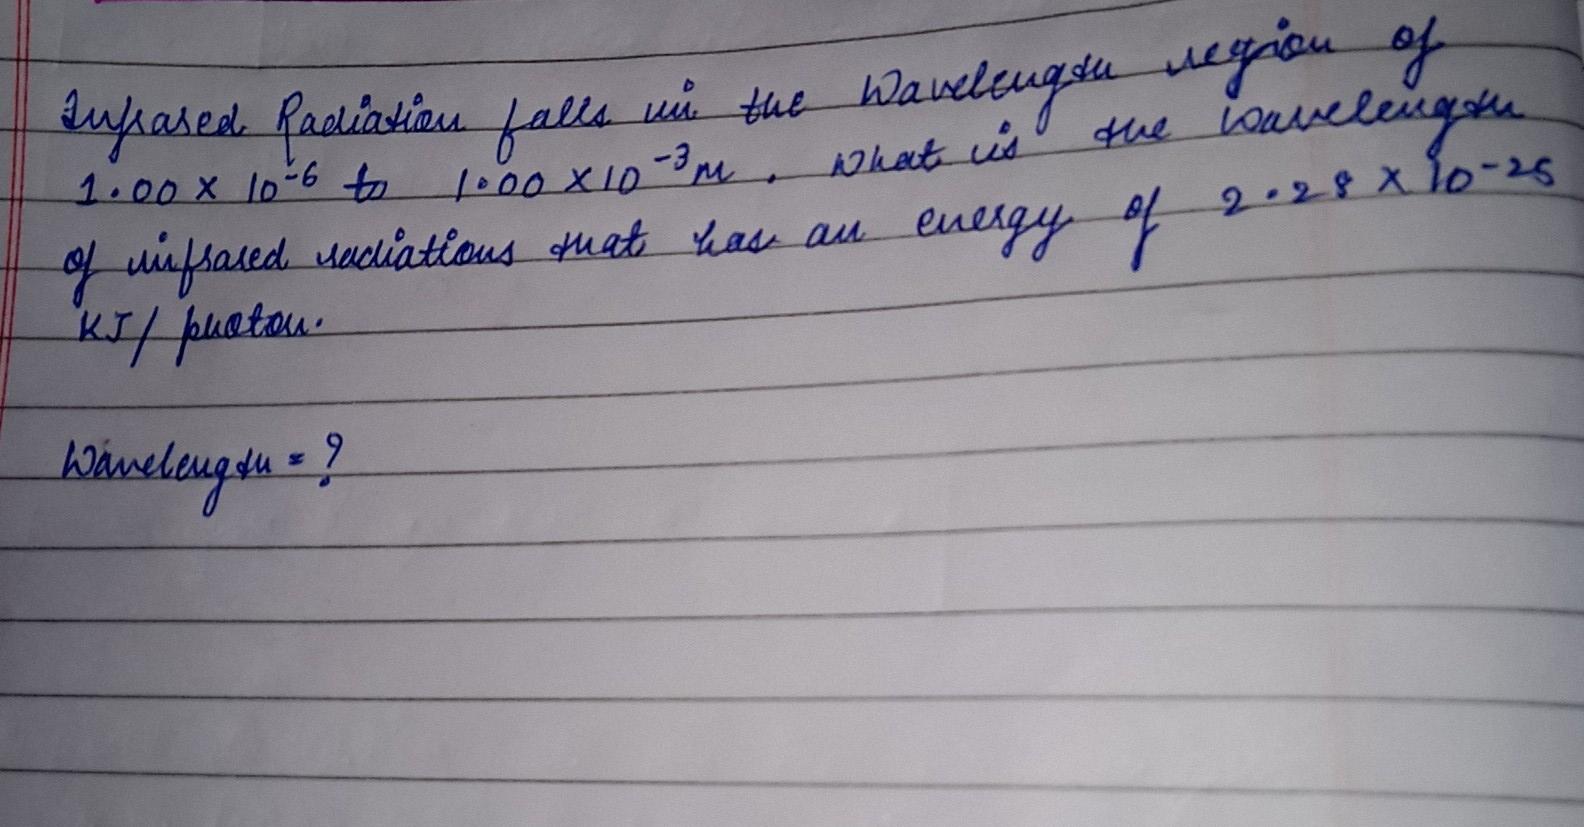 Infrared Radiation falls in the Wavelength region of
1.00 x 10-6 to 1.00 x 10-3m. What is the wavelength
of infrared radiations that has an energy of 2.28 x 10-25
KJ/ photon.
Wavelength = ?